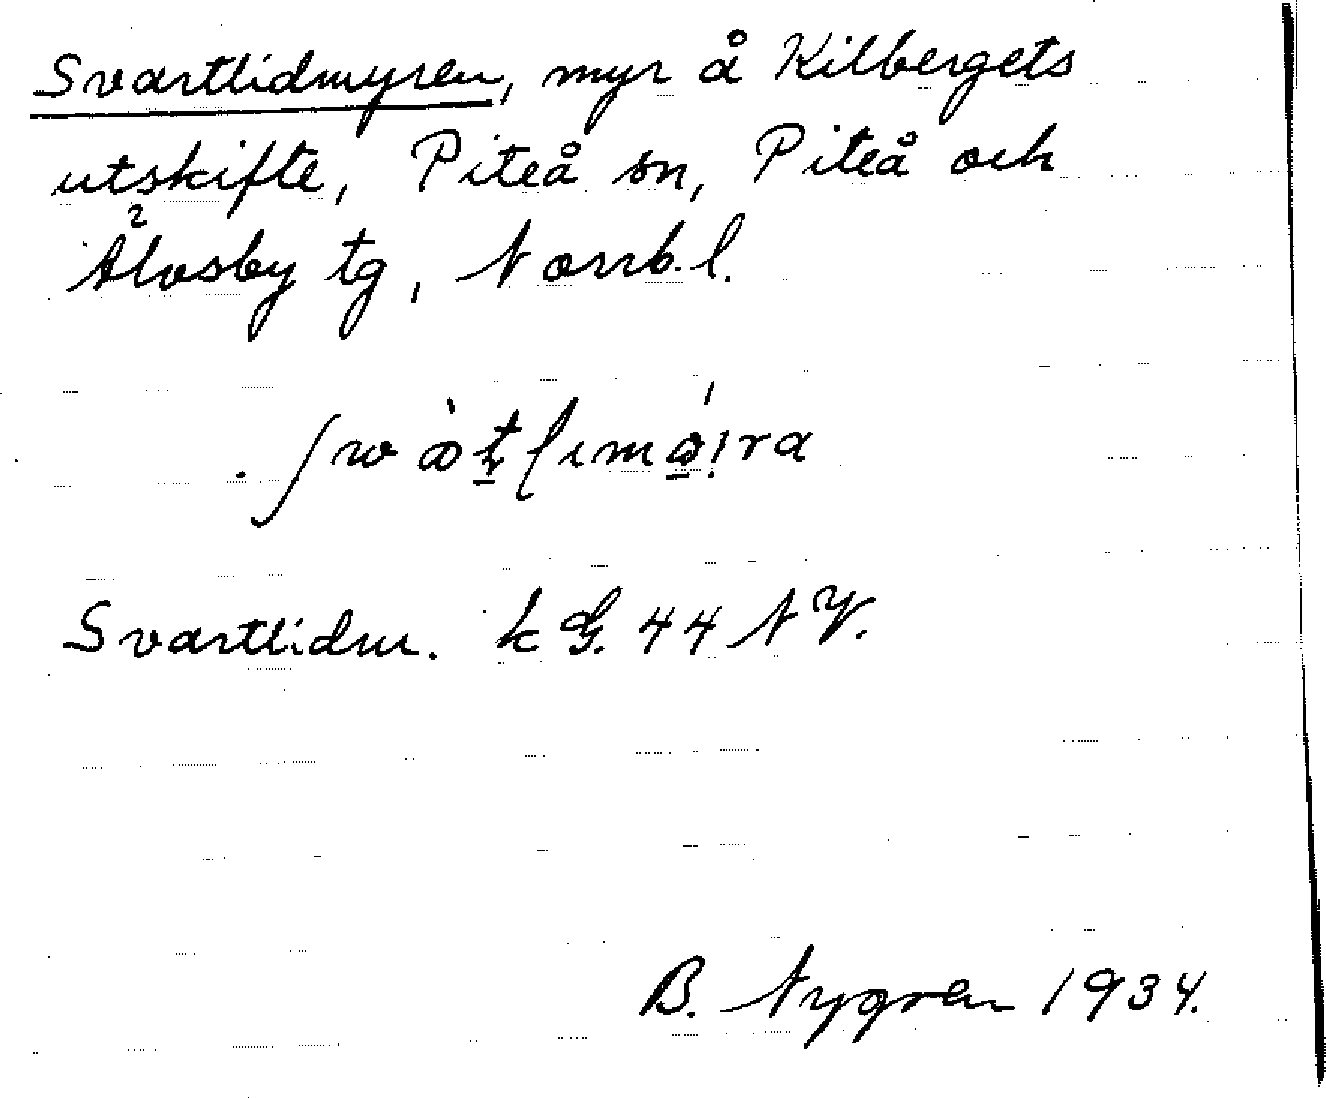 Svartlidmyren, myr å Kilbergets
utskifte, Piteå sn, Piteå och
Älvsby tg, Norrb. l.
Svartlidm. k G. 44 NV.
B. Nygren 1934.